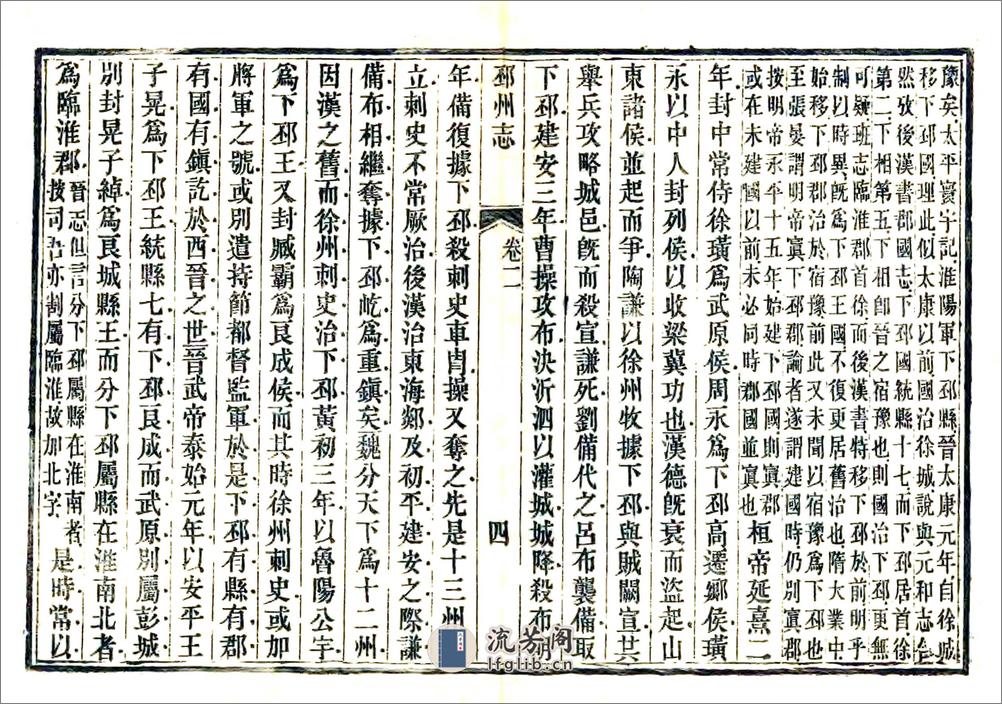 豫矣太平寰宇記淮陽軍下邳縣晉太康元年自徐城
移下邳國理此似太康以前國治徐城說與元和志合
然攷後漢書郡國志下邳國統縣十七而下邳居首徐
第二下相第五下相卽晉之宿豫也則國治下邳更無
可疑班志臨淮郡首徐而後漢書特移下邳於前明乎
制以時異旣爲下邳王國不復更居舊治也隋大業中
始移下邳郡治於宿豫前此又未聞以宿豫爲下邳也
至張晏謂明帝寘下邳郡論者遂謂建國時仍別寘郡
按明帝永平十五年始建下邳國則寘郡
或在未建國以前未必同時郡國並寘也
桓帝延熹二
年封中常侍徐璜爲武原侯周永爲下邳高遷鄉侯璜
永以中人封列侯以收梁冀功也漢德旣衰而盜起山
東諸侯並起而爭陶謙以徐州牧據下邳與賊闕宣共
舉兵攻略城邑旣而殺宣謙死劉備代之呂布襲備取
下邳建安三年曹操攻布決沂泗以灌城城降殺布明
邳州志
卷二
四
年備復據下邳殺刺史車冑操又奪之先是十三州所
立刺史不常厥治後漢治東海郯及初平建安之際謙
備布相繼奪據下邳屹爲重鎮矣魏分天下爲十二州
因漢之舊而徐州刺史治下邳黃初三年以魯陽公宇
爲下邳王又封臧霸爲良成侯而其時徐州刺史或加
將軍之號或別遣持節都督監軍於是下邳有縣有郡
有國有鎮訖於西晉之世晉武帝泰始元年以安平王
子晃爲下邳王統縣七有下邳良成而武原別屬彭城
別封晃子綽爲良城縣王而分下邳屬縣在淮南北者
爲臨淮郡
晉志但言分下邳屬縣在淮南者
按司吾亦割屬臨淮故加北字
是時常以
流芳阁
lfglib.cn